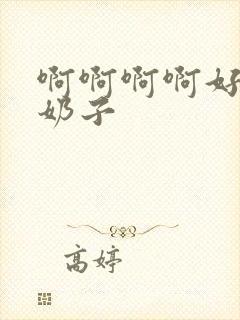 啊啊啊啊好
奶子
高婷